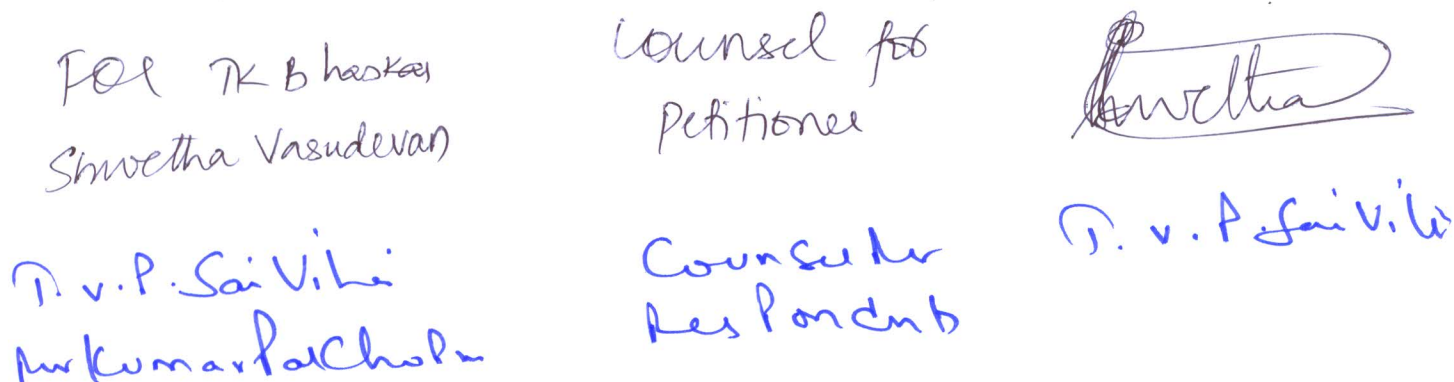 For TK Bhaskar
Shwetha Vasudevan
Counsel for
Petitioner
Shwetha
T. V. P. Sai Vihi
for Kumarpal Chopra
Counsel for
Respondents
T. V. P. Sai Vihi